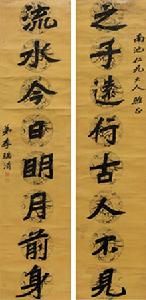 南池仁兄大人雅正
之子遠行古人不見
流水今日明月前身
弟李瑞清